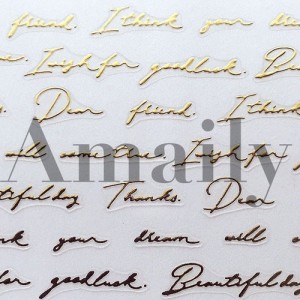 friend. I think your dream
I wish for goodluck. B
Dear friend. I think
Amaily
will some true. I wish for
utiful day Thanks. Dear
nk your dream will so
for goodluck. Beautiful day